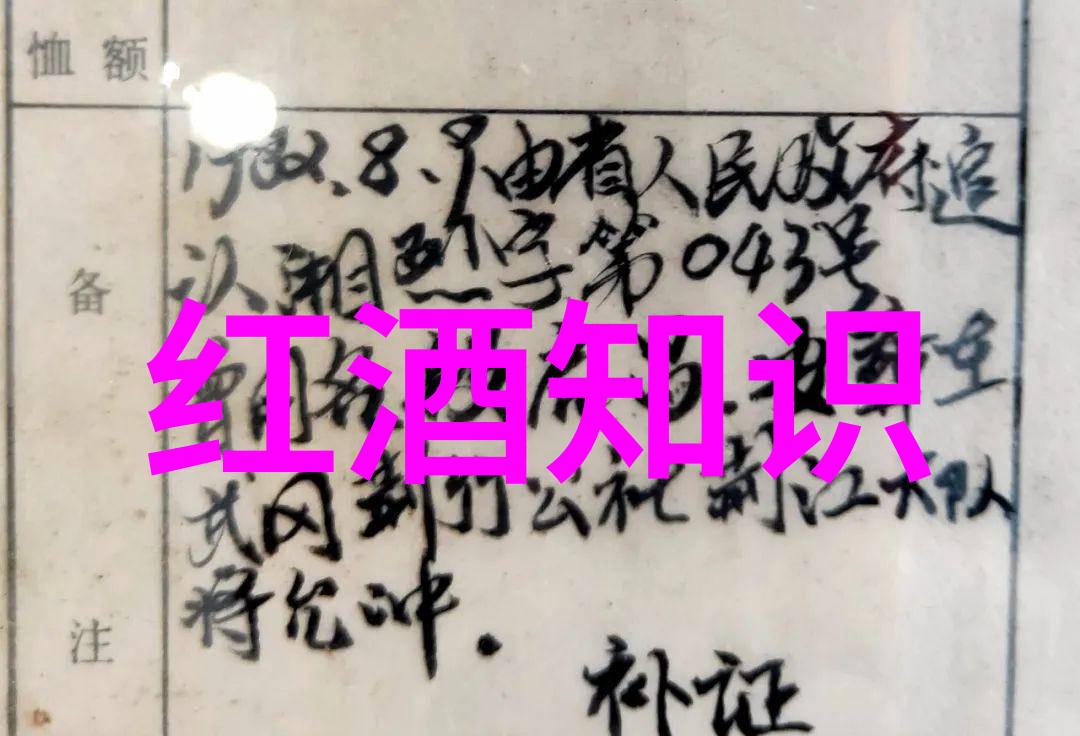 恤额
备
注
1982.8.9由省人民政府追
认湘烈字第043号
红酒知识
武冈荆竹公社荆江大队
将允冲.
补证